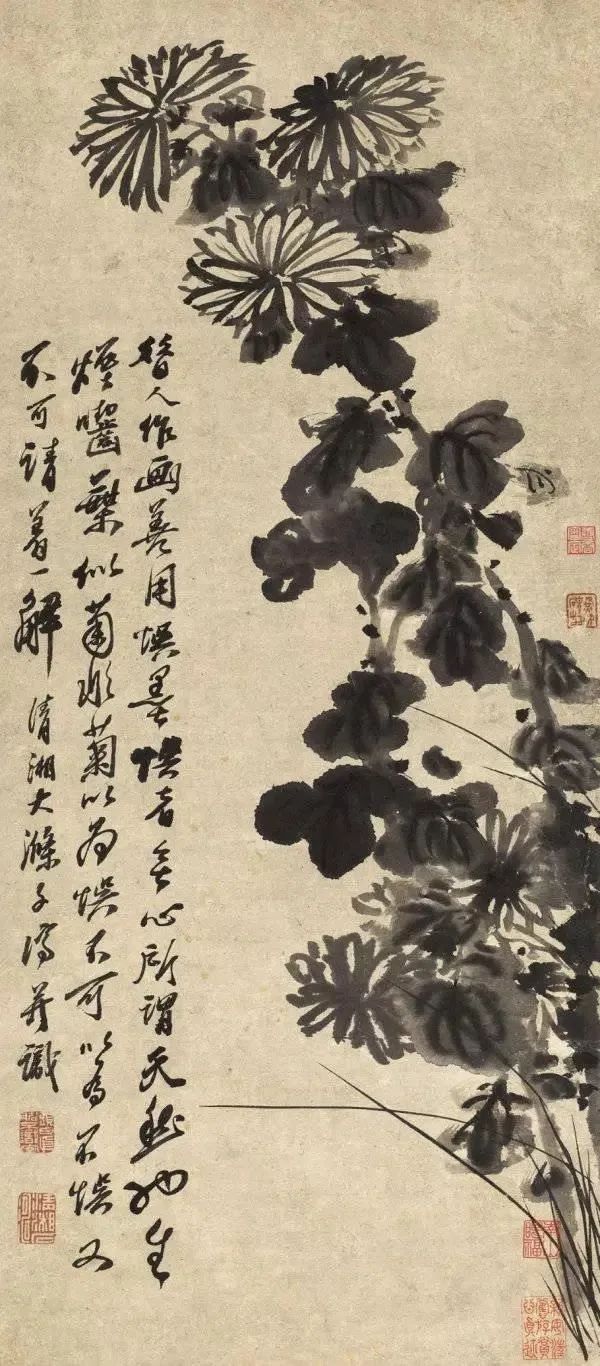 昔人作画善用悮墨悮者無心所謂天然生
葉似菊非菊以為悮不可以為不悮又
不可請着一解 清湘大滌子濟并識